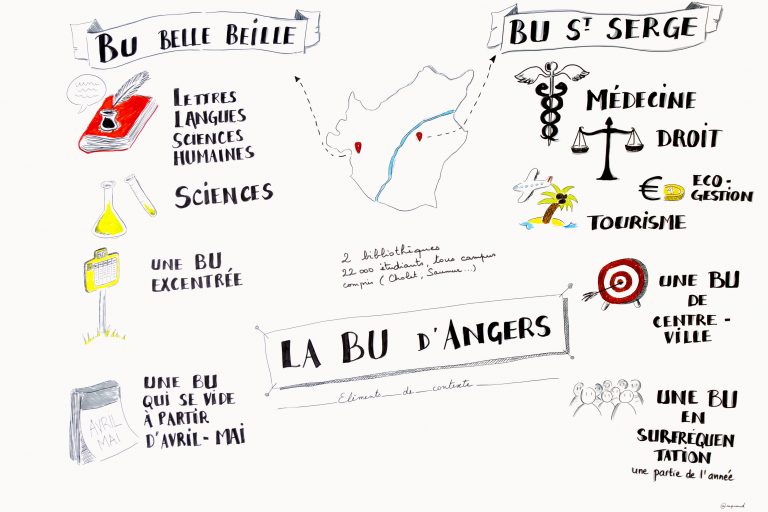 BU BELLE BEILLE
LETTRES
LANGUES
SCIENCES
HUMAINES
SCIENCES
UNE BU
EXCENTRÉE
UNE BU
QUI SE VIDE
À PARTIR
D'AVRIL-MAI
AVRIL
MAI
2 bibliothèques
22 000 étudiants, tous campus
compris (Cholet, Saumur...)
LA BU D'ANGERS
Eléments de contexte
BU ST SERGE
MÉDECINE
DROIT
€ ECO-
GESTION
TOURISME
UNE BU
DE
CENTRE-
VILLE
UNE BU
EN
SURFRÉQUEN
TATION
une partie de l'année